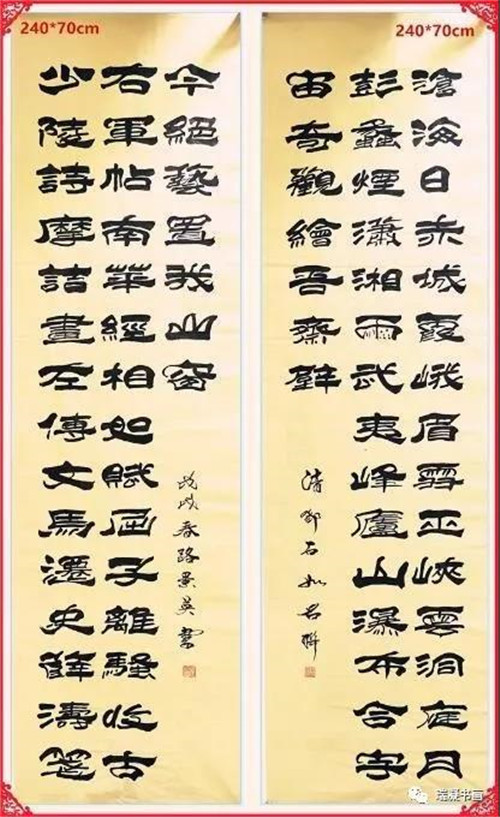 240*70cm
240*70cm
滄海日赤城霞峨眉雪巫峽雲洞庭月
彭蠡煙瀟湘雨武夷峰廬山瀑布合宇
宙奇觀繪吾齋壁
清鄧石如名聯
少陵詩摩詰畫左傳文馬遷史薛濤箋
右軍帖南華經相如賦屈子離騷收古
今絕藝置我山窗
戊戌春路景英書
瑞凝书画